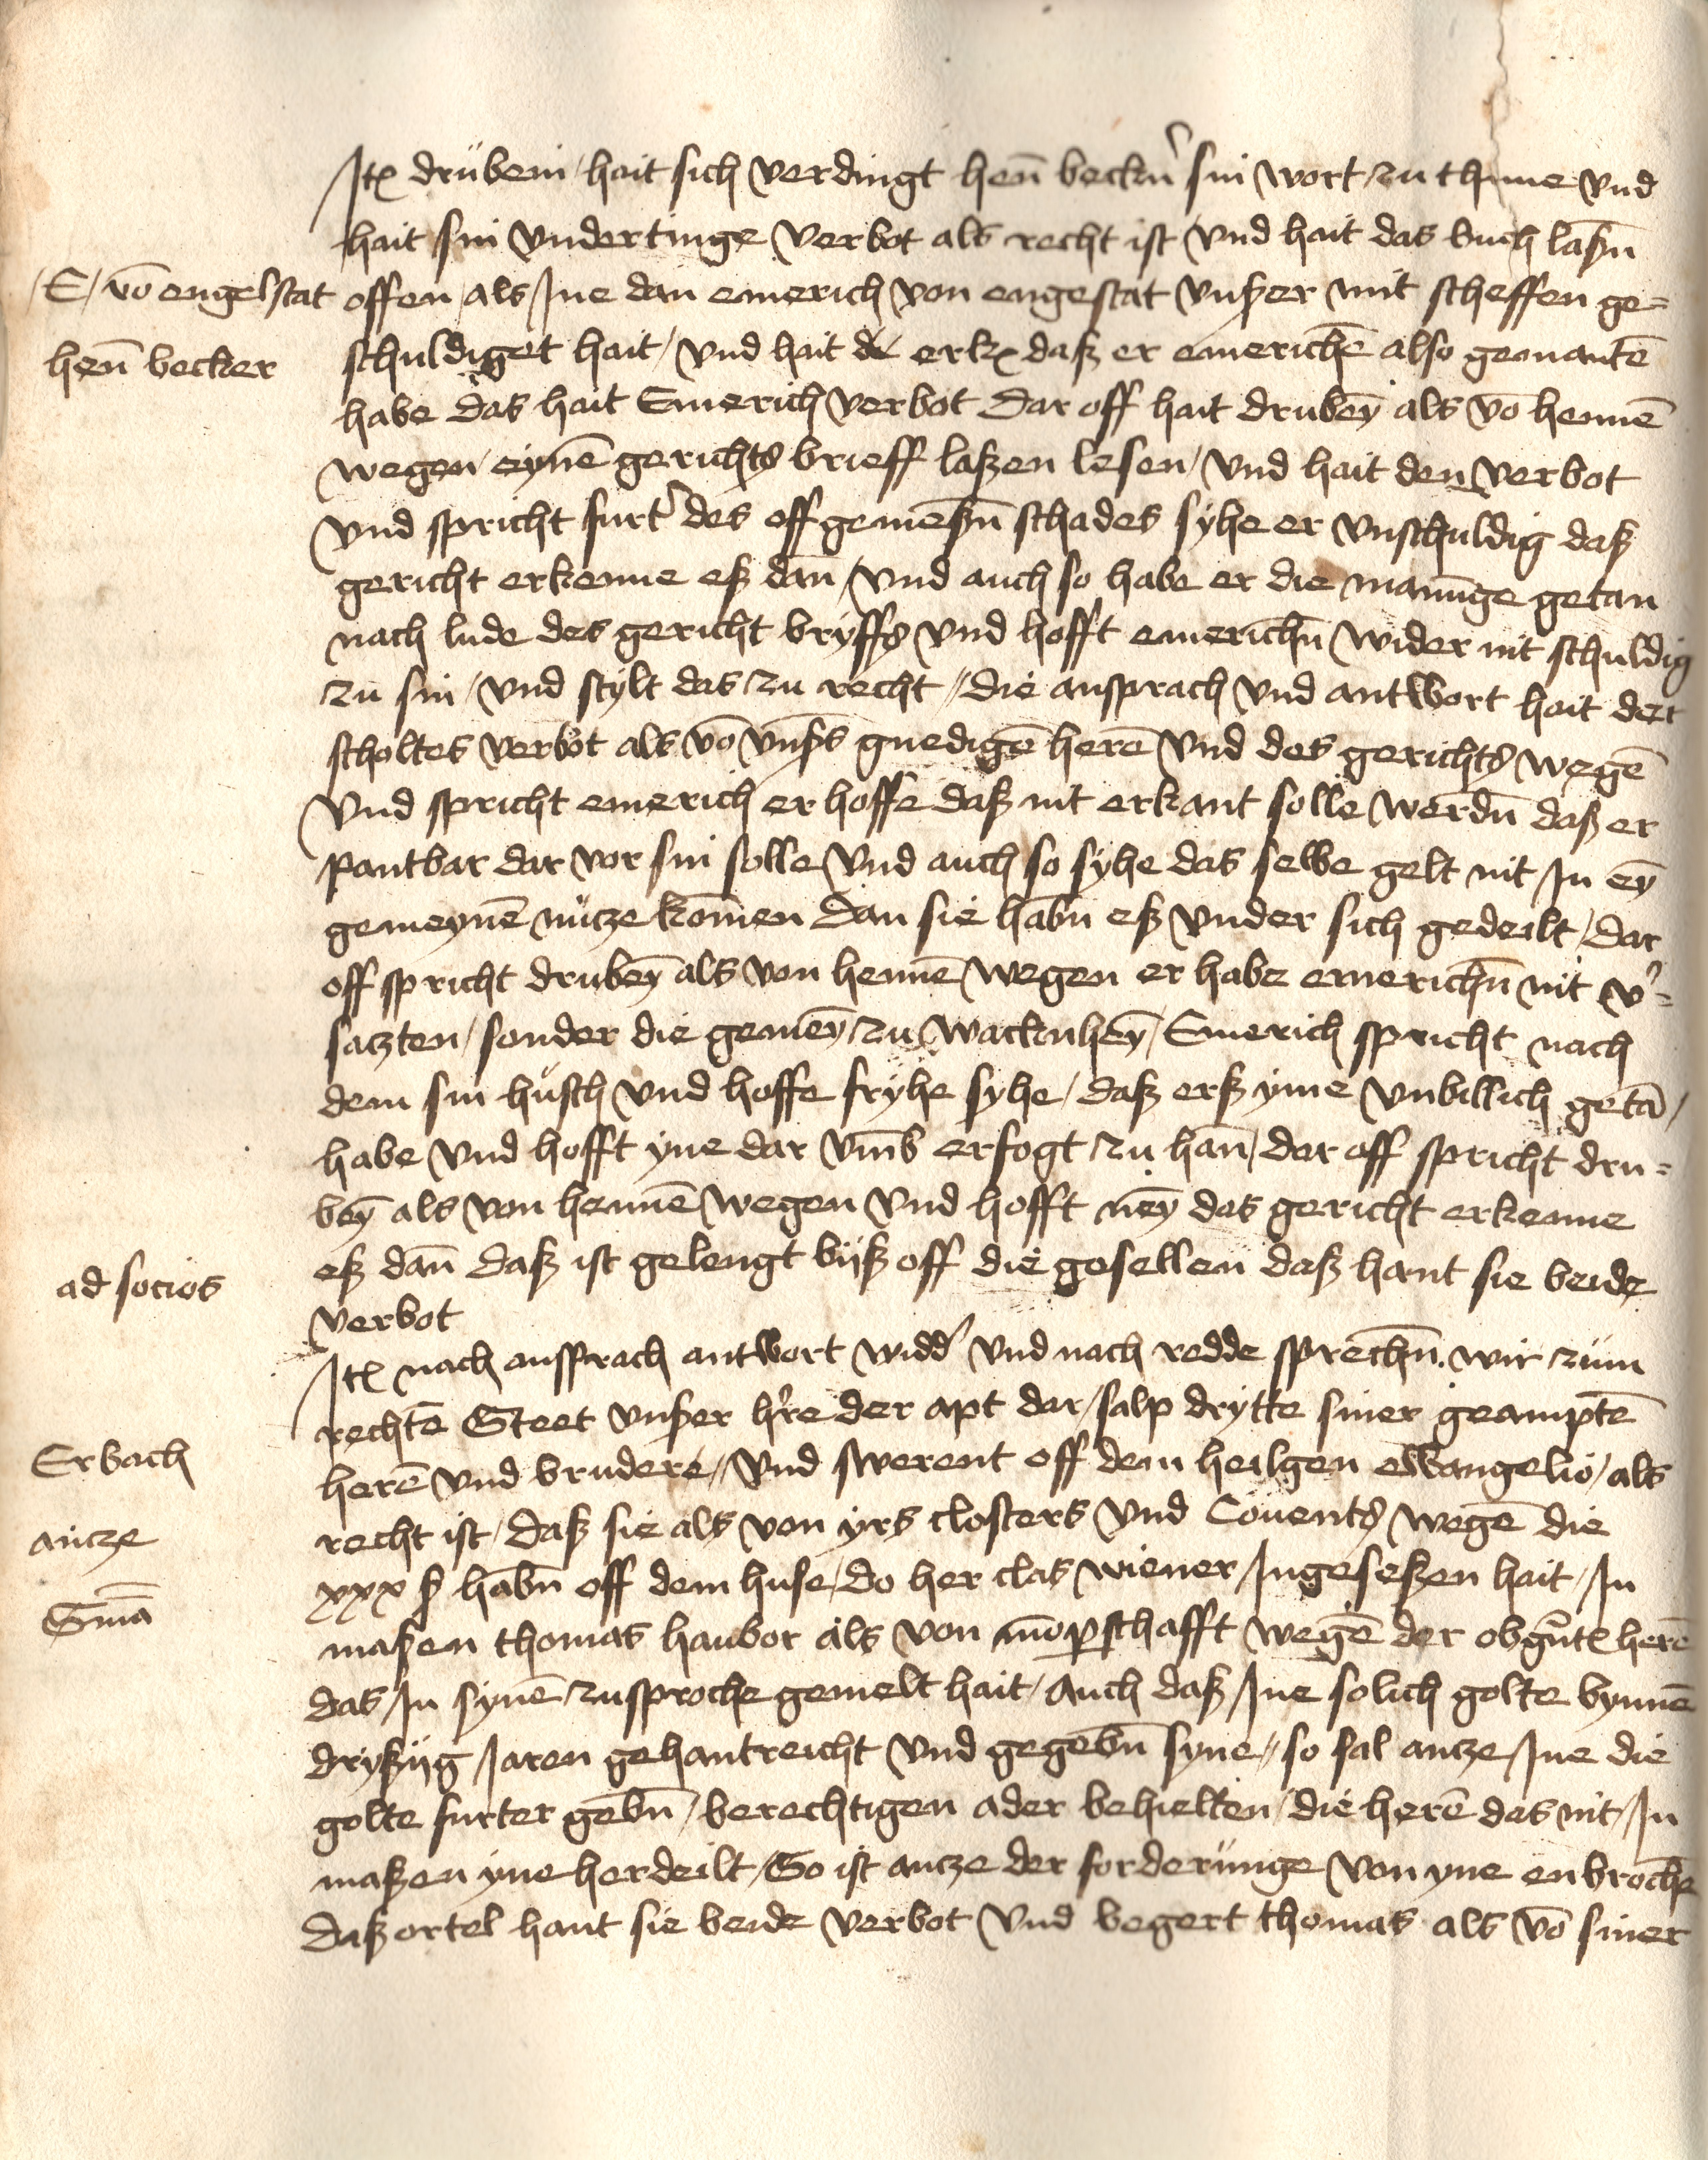 Itẽ drubein hait sich verdingt hen̄ beckn̄ sin wort zu thune vnd
hait sin vndertinge verbot als recht ist vnd hait das buch laßn̄
E võ engelstat
offen als Ine dan emerich von engestat vnßer mit scheffen ge=
hen̄ becker
schuldiget hait vnd hait erkẽ daß er emerichẽ also gemantẽ
habe das hait Emerich verbot Dar off hait drubey̅ als võ hennẽ
wegen eynẽ gerichts brieff laßen lesen vnd hait den verbot
vnd spricht furt' des offgemeßn̄ schades syhe er vnschuldig daß
gericht erkenne eß dan̄ vnd auch so habe er die manu̅ge getan
nach lude des gericht bryffs vnd hofft emerichn̄ wider nit schuldig
zu sin vnd stylt das zu recht die ansprach vnd antwort hait der
scholtes verbot als võ vnßs gnedigẽ herẽ vnd des gerichts wegẽ
Vnd spricht emerich er hoffe daß nit erkant solle werdn̄ daß er
pantbar dar vor sin solle vnd auch so syhe das selbe gelt nit In ey̅
gemeynẽ nutze kom̅en Dan sie habn̄ eß vnder sich gedeilt dar
off spricht drubey̅ als von hennẽ wegen er habe emerichn̄ nit v'=
satzten sonder die gemey̅ zu wackn̄hey̅ Emerich spricht nach
dem sin husch vnd hoffe fryhe syhe daß erß yme vnbillich getã
habe vnd hofft yne dar vm̅b erfogt zu han̄ dar off spricht dru=
bey̅ als von hennẽ wegen vnd hofft ney̅ das gericht erkenne
eß dan̄ daß ist gelengt byß off die gesellen daß hant sie beide
ad socios
verbot
Itẽ nach anspprach antwort widd' vnd nach redde sprechn̄ wir zum
rechtẽ Steet vnßer h're der apt dar salp drytte siner geamptẽ
Erbach
herẽ vnd brudere vnd swerent off dem heilgen ewangelio als
antze
recht ist daß sie als von yrs closters vnd Couents wegẽ die
Gmã
xxx ß habn̄ off dem huse do her clas wiener Ingeseßen hait In
maßen thomas haubor als von mo̅pschafft wegẽ der obgn̄tẽ herẽ
das In synẽ zusproche gemelt hait Auch daß Ine solich golte bynnẽ
dryßijg Jaren gehantreicht vnd gegebn̄ syne so sal antze Ine die
golte furter gebn̄ berechtigen ader behielten die herẽ das nit In
maßen yne herdeilt So ist antze der forderunge von yne enbrochẽ
Daß ortel hant sie beide verbot vnd begert thomas als võ siner